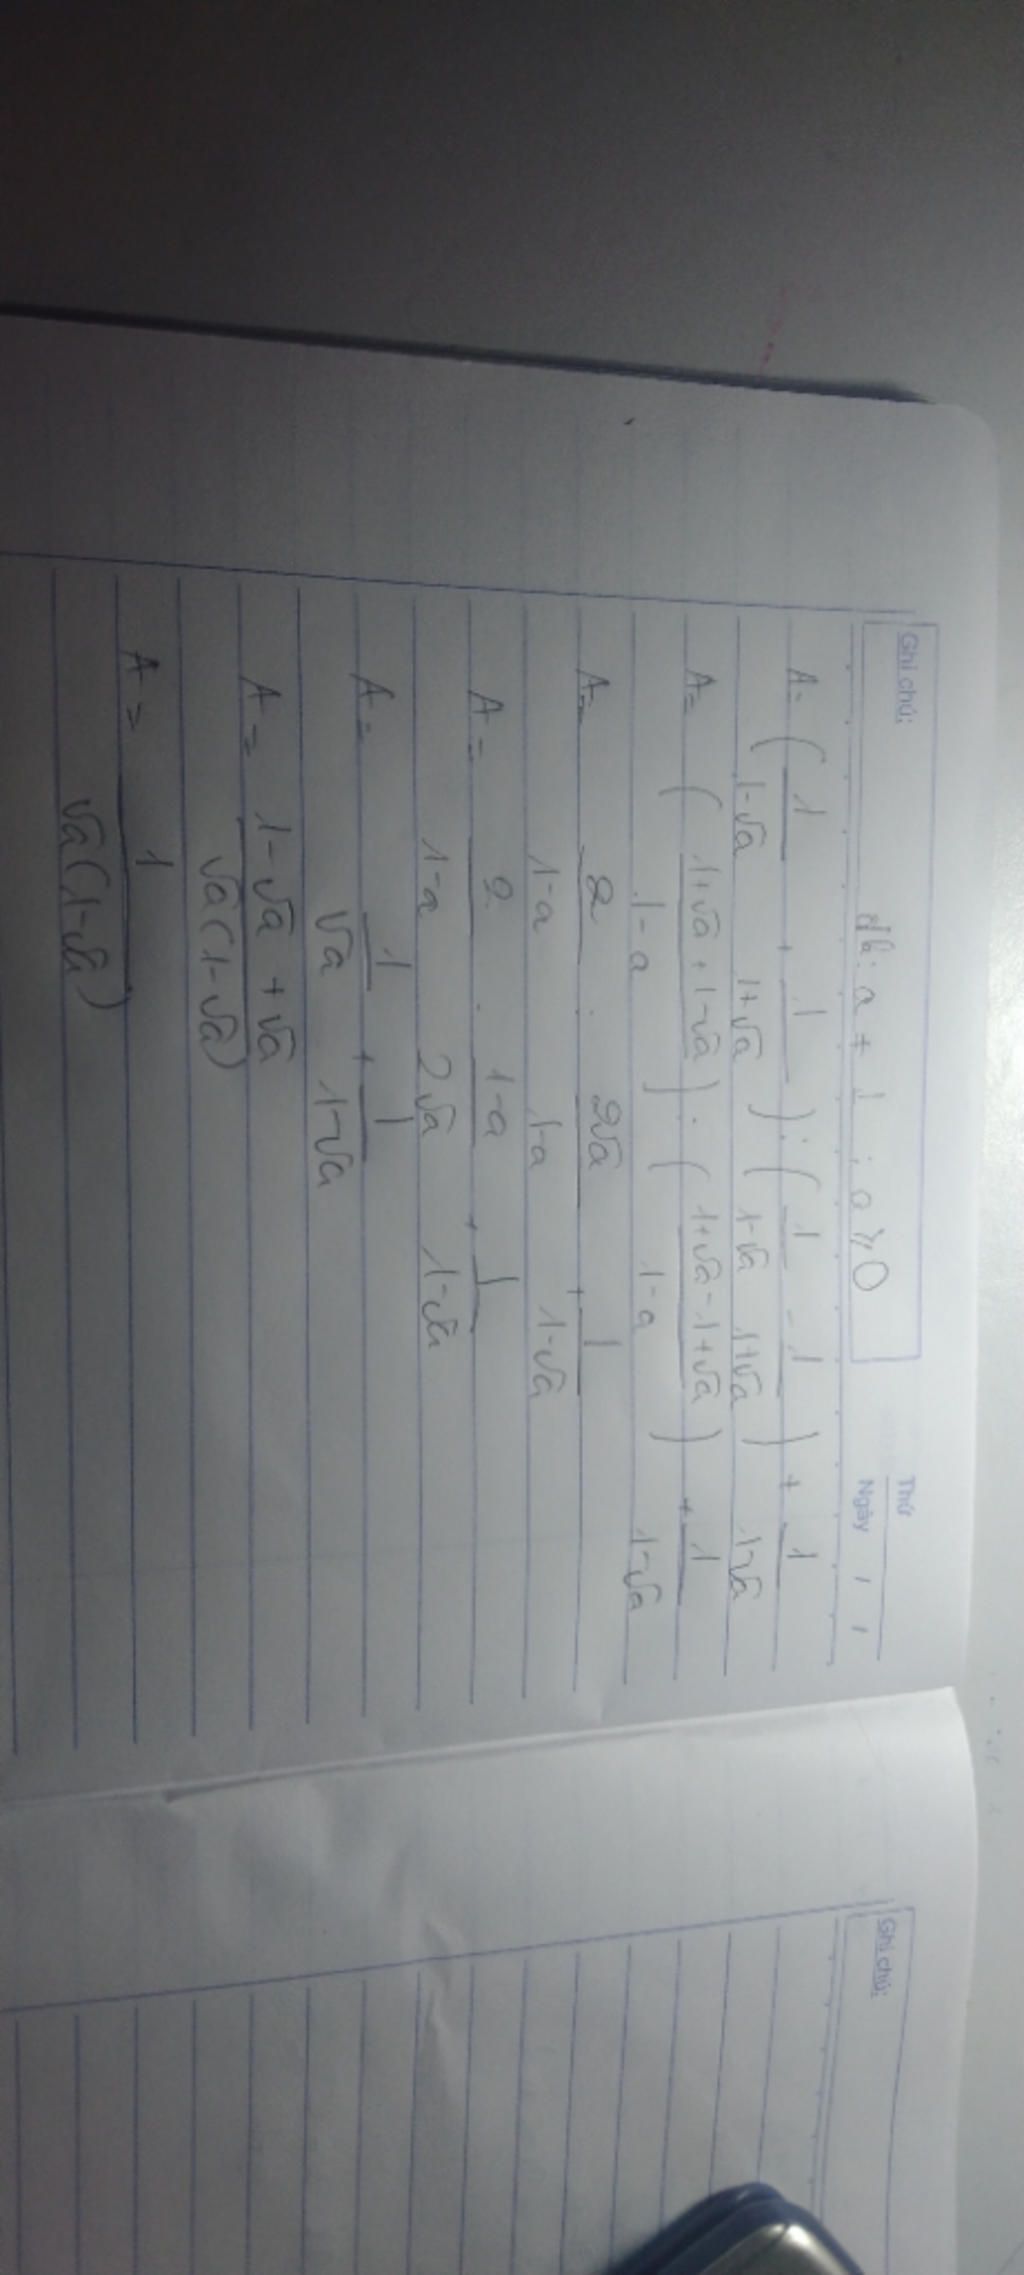 Ghi chú:
Thứ
Ngày / /
đk: a ≠ 1 ; a ≥ 0
A = ( 1/(1-√a) + 1/(1+√a) ) : ( 1/(1-√a) - 1/(1+√a) ) + 1/(1-√a)
A = ( (1+√a+1-√a)/(1-a) ) : ( (1+√a-1+√a)/(1-a) ) + 1/(1-√a)
A = 2/(1-a) : 2√a/(1-a) + 1/(1-√a)
A = 2/(1-a) . (1-a)/(2√a) + 1/(1-√a)
A = 1/√a + 1/(1-√a)
A = (1-√a+√a)/(√a(1-√a))
A = 1/(√a(1-√a))
Ghi chú: